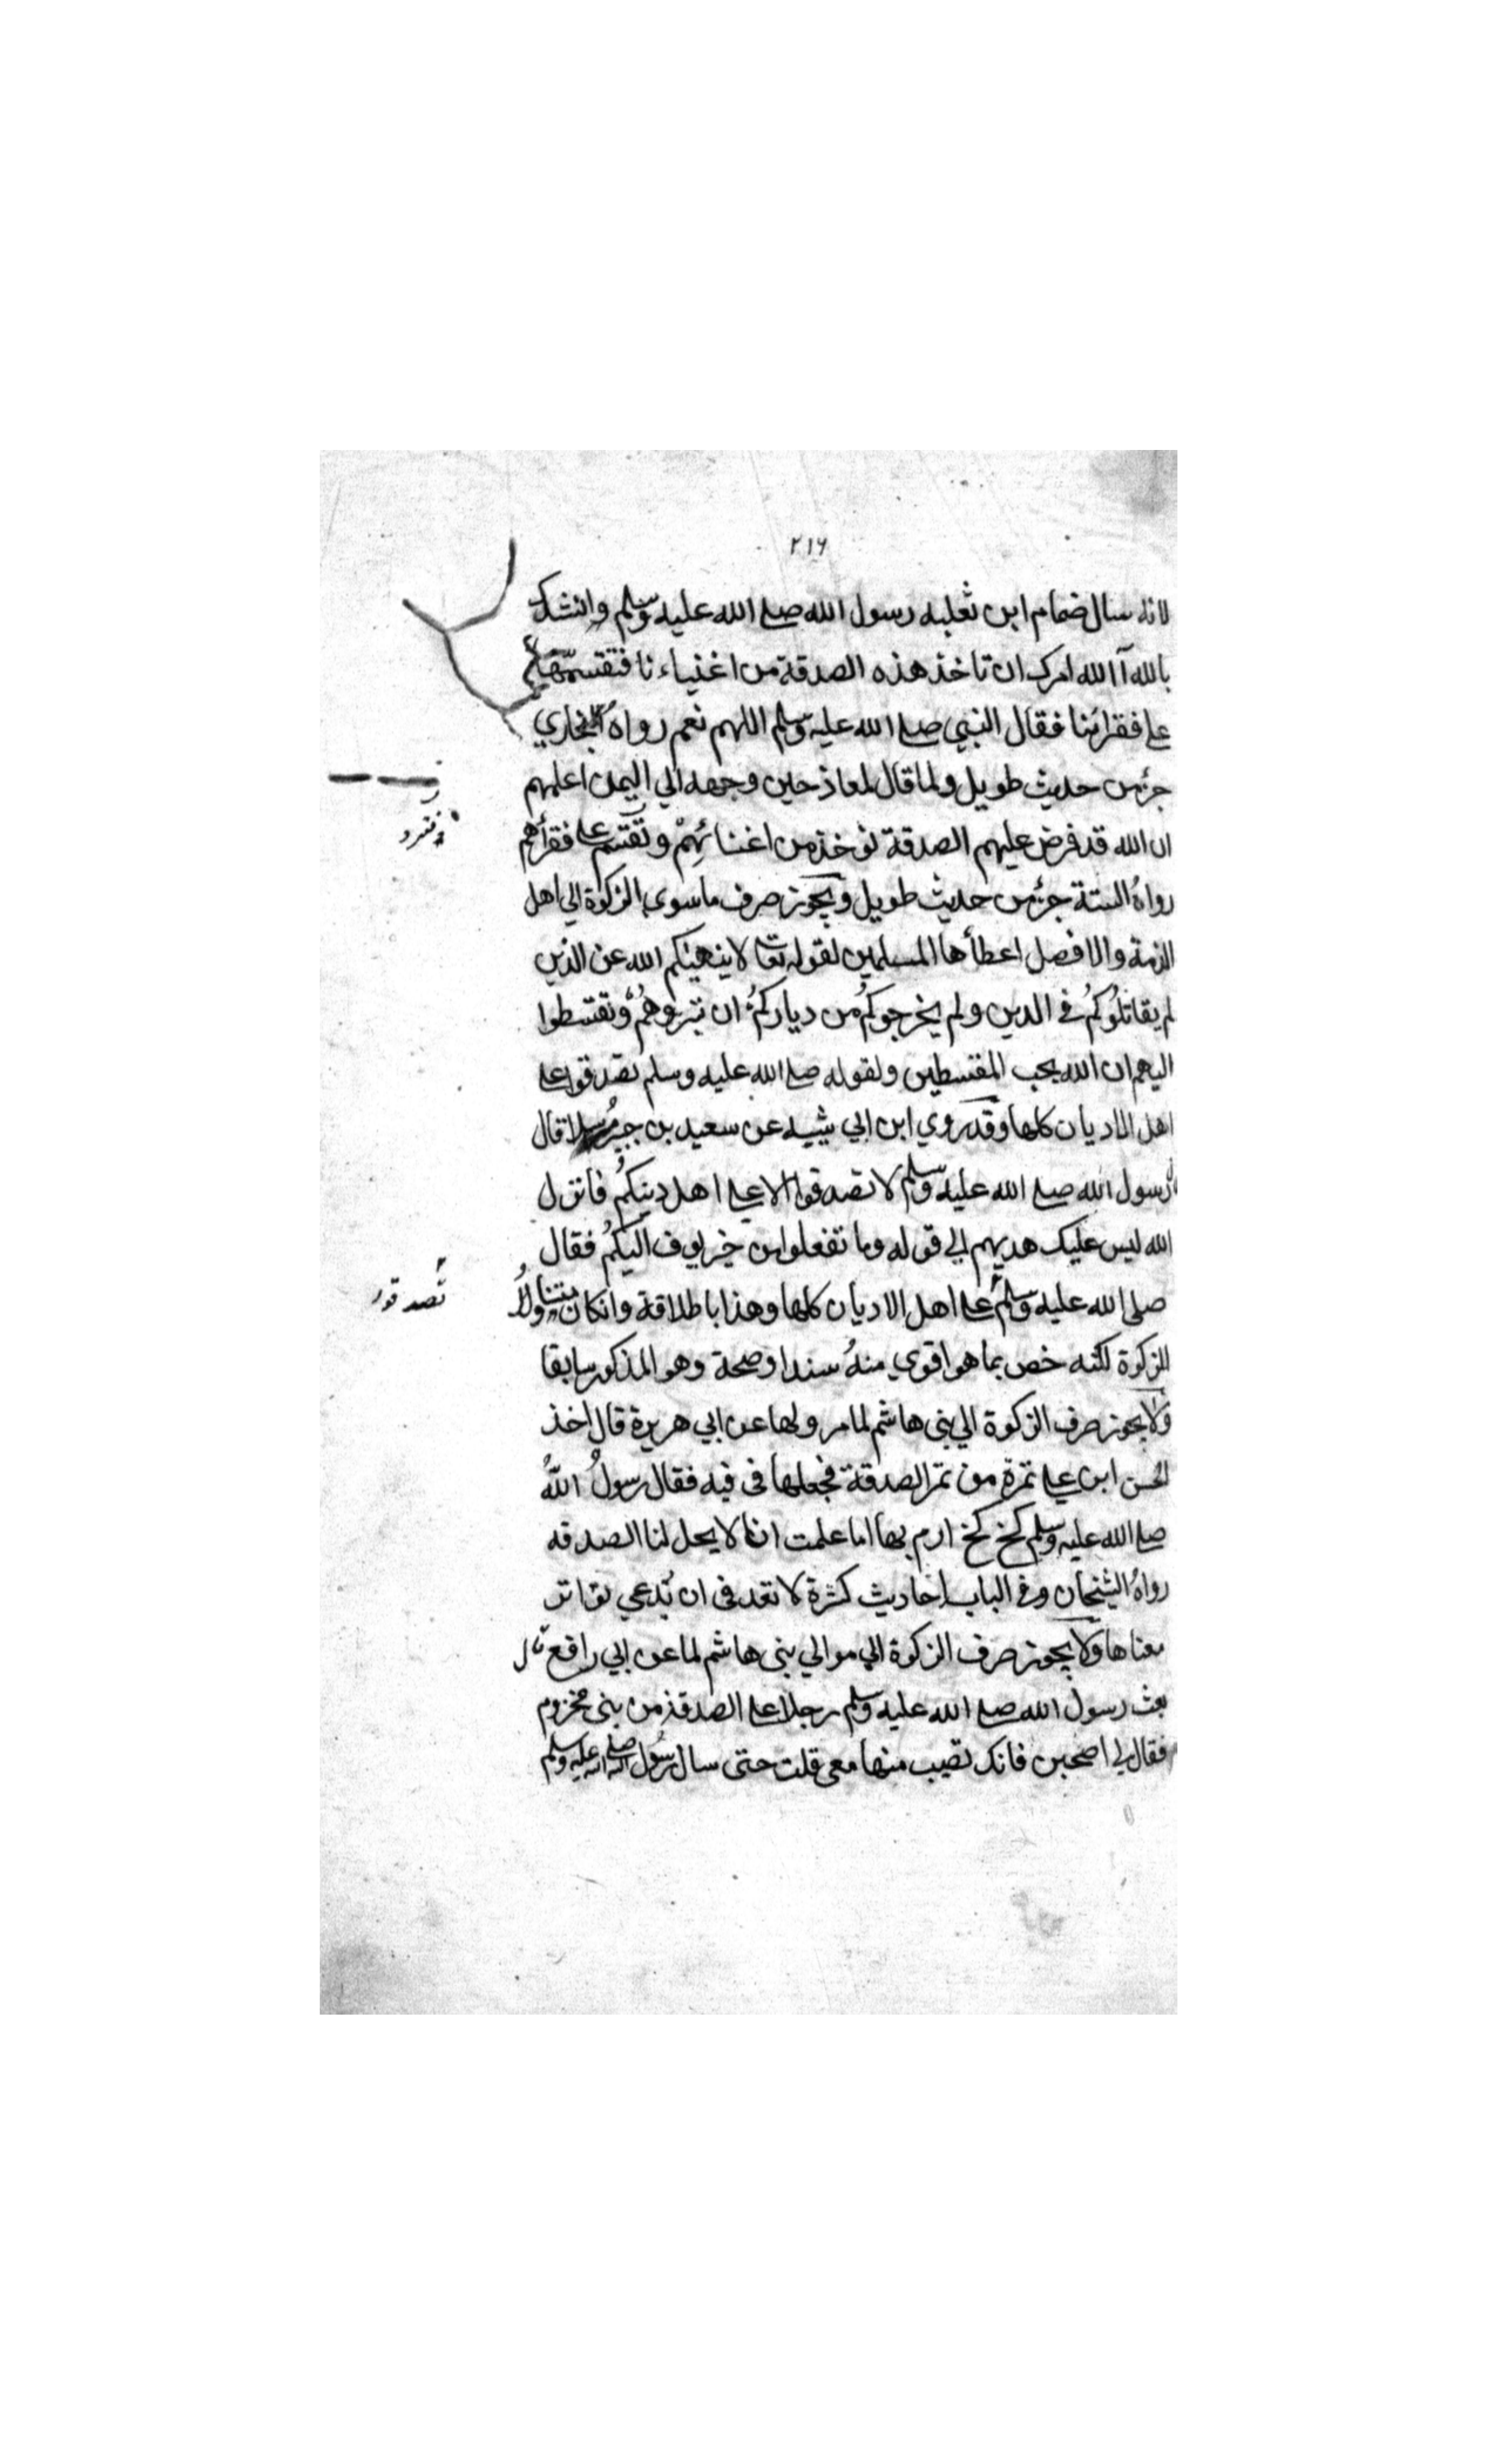 ٢١٦
لانه سال ضمام ابن ثعلبه رسول الله صلے الله عليه وسلم وانشدك
بالله آالله امرك ان تاخذ هذه الصدقة من اغنياءنا فتقتسمها
علے فقرائنا فقال النبي صلے الله عليه وسلم اللهم نعم رواهُ البخاري
جزء من حديث طويل ولما قال لمعاذ حين وجهه الي اليمن اعلمهم
ان الله قد فرض عليهم الصدقة توخذ من اغنيائهِمْ وتقتسم علے فقرأهم
رواهُ الستة جزء من حديث طويل ويجوز صرف ما سوي الزكوة الي اهل
الذمة والافصل اعطأها المسلمين لقوله تعا لا ينهيكم الله عن الذين
لم يقاتلُوكُم في الدين ولم يخرجوكُم من دياركُم ان تبروهُم وتقتسطوا
اليهم ان الله يحب المقتسطين ولقوله صلے الله عليه وسلم تصدقوا علے
اهل الاديان كلها وقد روي ابن ابي شيبه عن سعيد بن جبير مُرسلا قال
رسول الله صلے الله عليه وسلم لا تصدقوا الا علے اهل دينكُم فانزل
الله ليس عليك هديهم الي قوله وما تفعلوا من خير يوف اليكُم فقال
صلی الله عليه وسلم علے اهل الاديان كلها وهذا باطلاقة وانكان يتناولُ
تصدقوا
للزكوة لكنه خص بما هو اقوي منهُ سندا وصحة وهو المذكور سابقا
ولا يجوز صرف الزكوة الي بني هاشم لما مر ولها عن ابي هريرة قال اخذ
الحسن ابن علے تمرة من تمر الصدقة فجعلها في فيه فقال رسولُ اللهُ
صلے الله عليه وسلم كخ كخ ارم بها اما علمت انا لا يحل لنا الصدقه
رواهُ الشيخان وفي الباب احاديث كثرة لا تعد في ان يُدعي تواتر
معناها ولا يجوز صرف الزكوة الي موالي بني هاشم لما عن ابي رافع قال
بعث رسول الله صلے الله عليه وسلم رجلا علے الصدقة من بني مخزوم
فقال لي اصحبن فانك تصيب منها معي قلت حتى سال رسُول الله صلے الله عليه وسلم